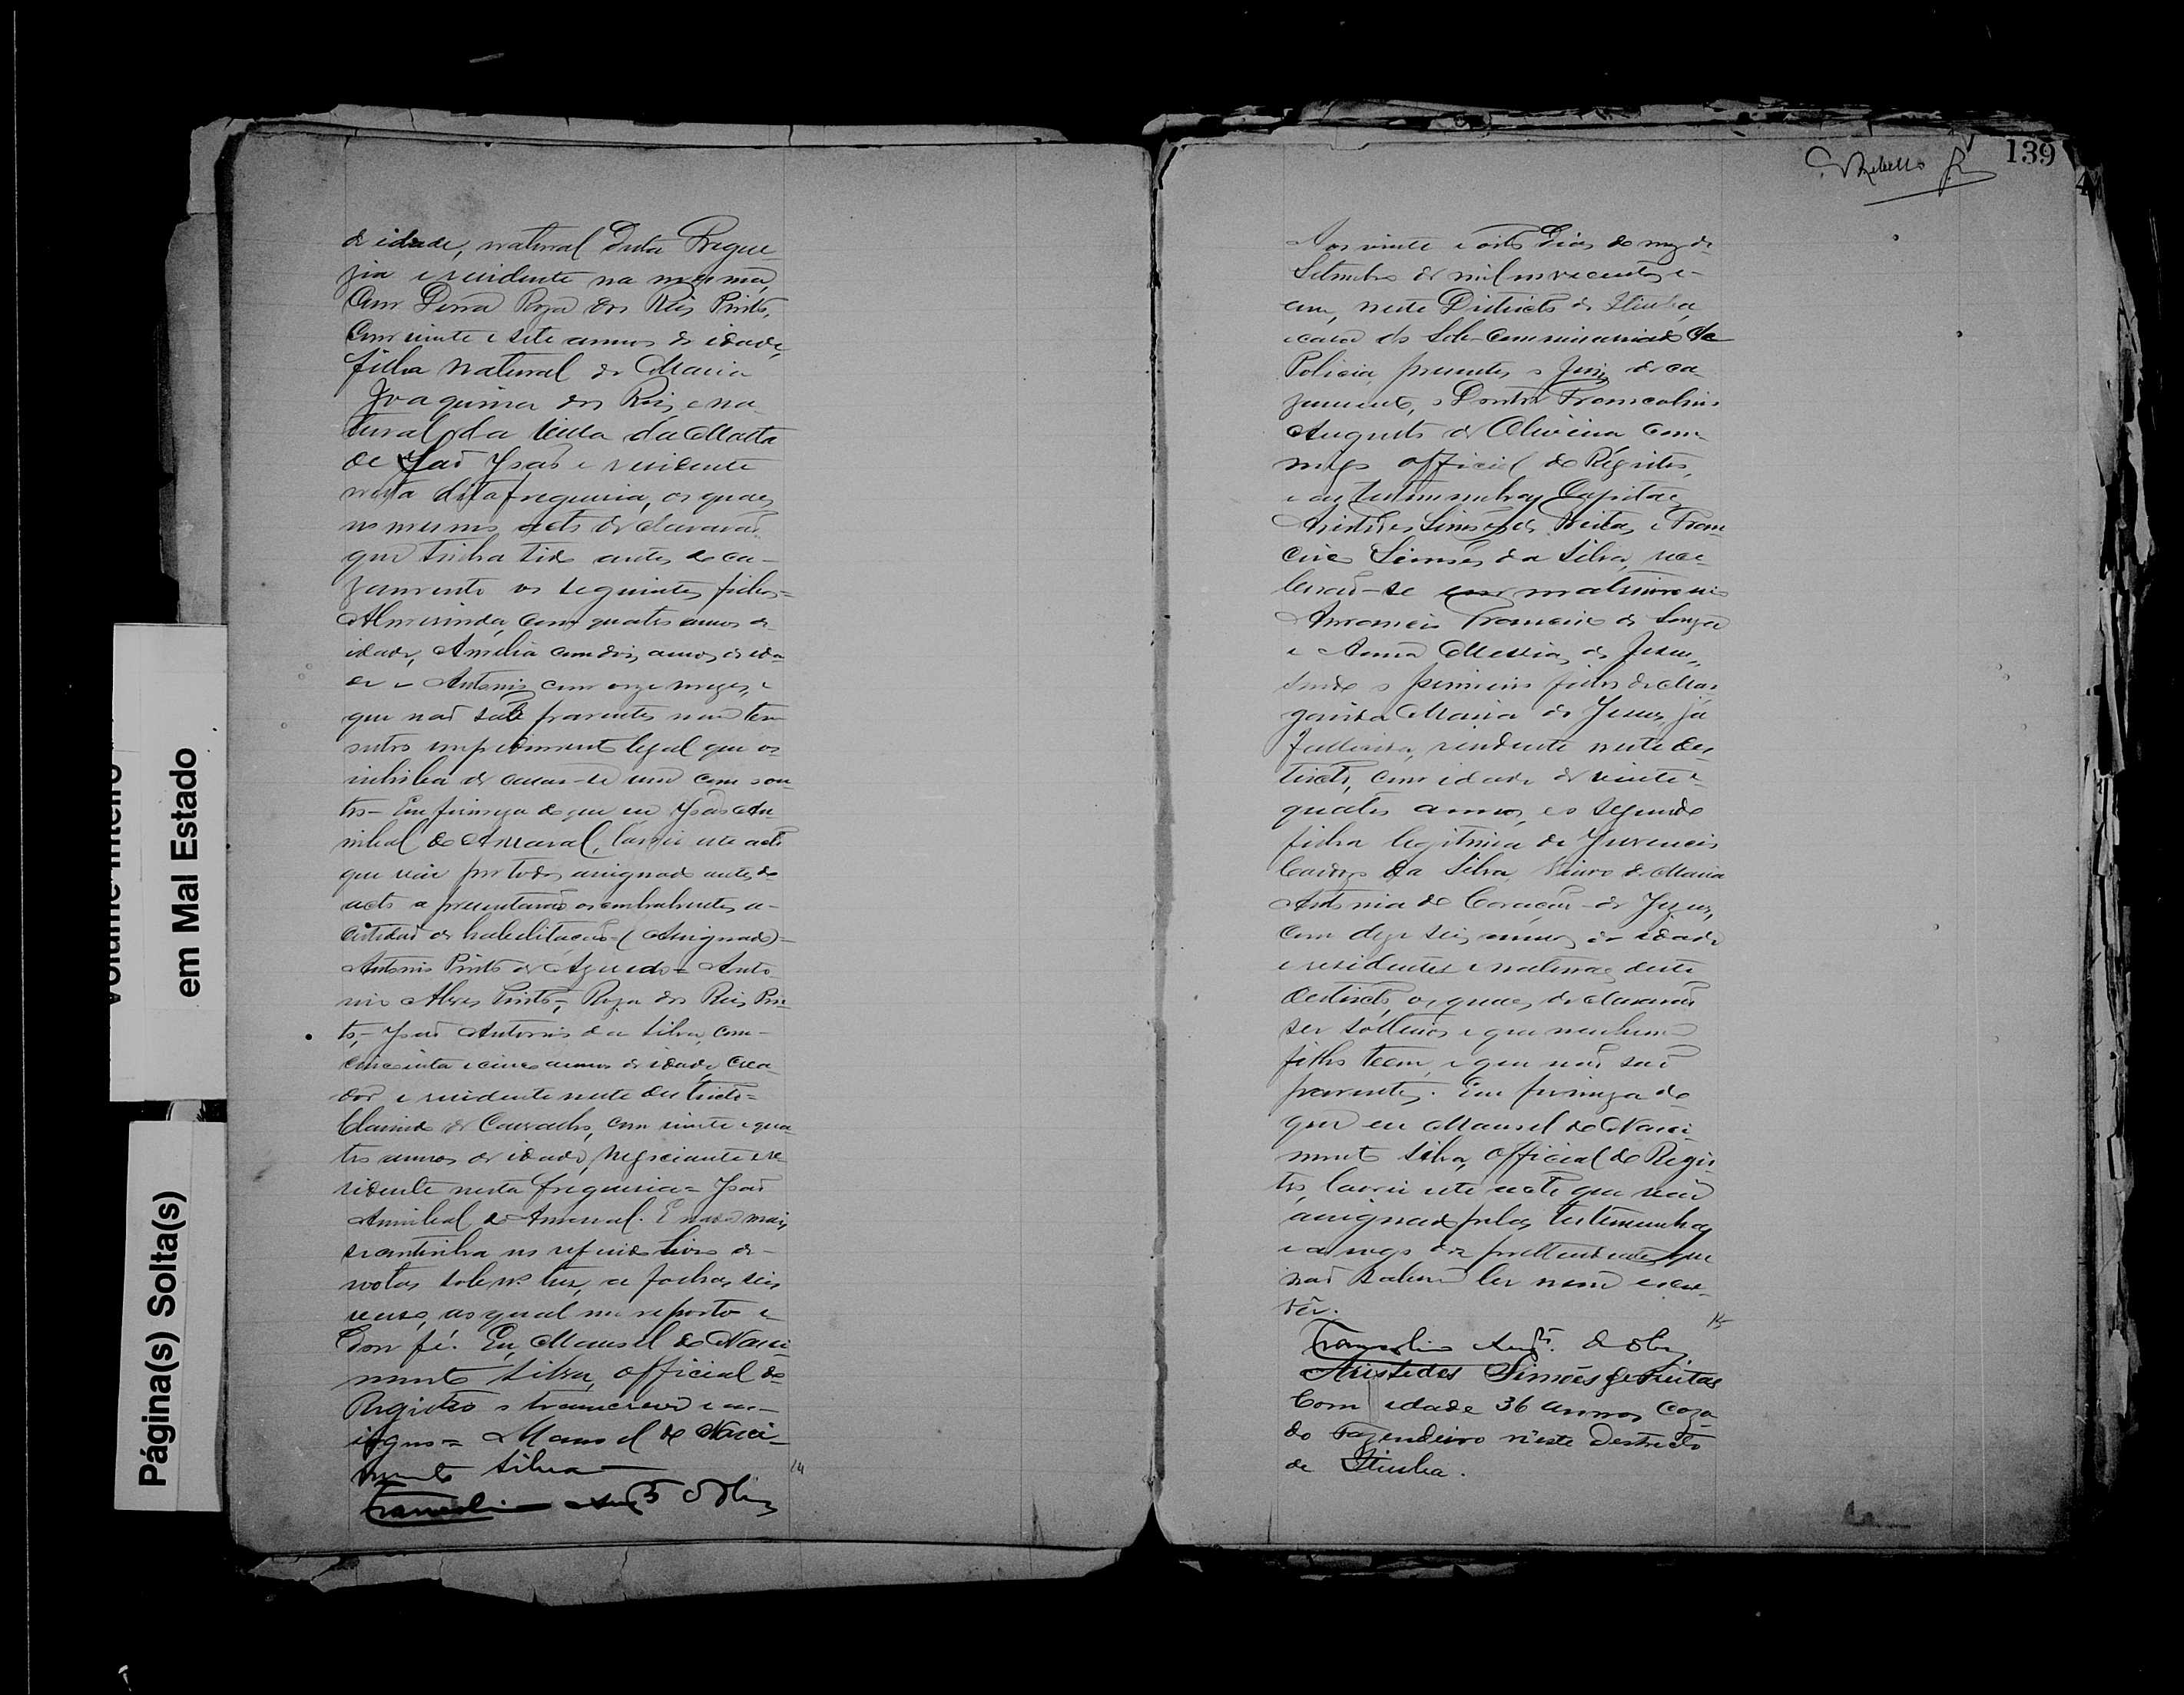 de idade, natural desta Fregue-
zia e residente na mesma,
Com Dona Roza dos Reis Pinto,
Com vinte e sete annos de idade,
filha natural de Maria
Joaquina dos Reis, e na-
tural da Villa da Matta
de São João e residente
nesta dita freguezia, os quaes
no mesmo acto declararão
que tinha tido antes do ca-
zamento os seguintes filhos=
Almerinda, com quatro annos de
idade, Amelia com dois annos de ida-
de e Antonio com onze mezes, e
que não são parentes nem tem
outro impedimento legal que os
inhiba de casar-se um com o ou-
tro- Em firmeza do que eu João An-
nibal do Amaral, lavrei este acto
que vai por todos assignado antes do
acto apresentarão os contrahentes a-
certidão de habilitação (Assignado)=
Antonio Pinto de Azevedo= Anto-
nio Alves Pinto,= Roza dos Reis Pin-
to,- João Antonio da Silva, com-
cincoenta e cinco annos de idade, crea-
dor e residente neste destricto=
de Carvalho, com vinte e qua-
tro annos de idade, Negociante e re-
sidente nesta freguezia= João
Annibal do Amaral. E nada mais
se continha no referido livro de-
notas sob nº trez, a folhas seis
verso, ao qual me reporto e
dou fé. Eu, Manoel do Nasci-
mento Silva, official do
Registro o transcrevi e as-
signo= Manoel do Nasci-
mento Silva
14
139
Rebello Jr
Aos vinte e oito dias do mez de
Setembro de mil novecentos e-
um, neste Districto de Itiuba,
e casa do Sob-Commissariado de
Policia, presentes o Juiz de ca-
zamento, o Doutor Francolino
Augusto de Oliveira Com-
migo official do Registro,
e as testemunhas Capitão
Aristides Simões de Freitas, e Fran-
cisco Simões da Silva, rece-
berão-se em matrimonio
Francisco de Souza
e Anna Messias de Jesus,
sendo o primeiro filho de Mar-
garida Maria de Jesus, já
fallecida, residente neste des-
tricto, com idade de vinte e
quatro annos, e o segundo
filha legitima de Juvencio
Cardozo da Silva, Viuvo de Maria
Antonia do Coração de Jezus,
Com deze seis annos de idade
e residentes e naturaes deste
destricto, os quaes declararão
ser solteiros e que nenhum
filho teem, e que não são
parentes. Em firmeza do
que eu Manoel do Nasci-
mento Silva, Official do Regis-
tro, lavrei este acto que vai
assignado pelas testemunhas
e a rogo dos prettendentes que
não sabem ler nem escre-
ver.
15
Francolino Augto de Olivª
Aristides Simões de Freitas
Com idade 36 annos Caza-
do Fazendeiro n'este Destricto
de Itiuba.
em Mal Estado
Página(s) Solta(s)